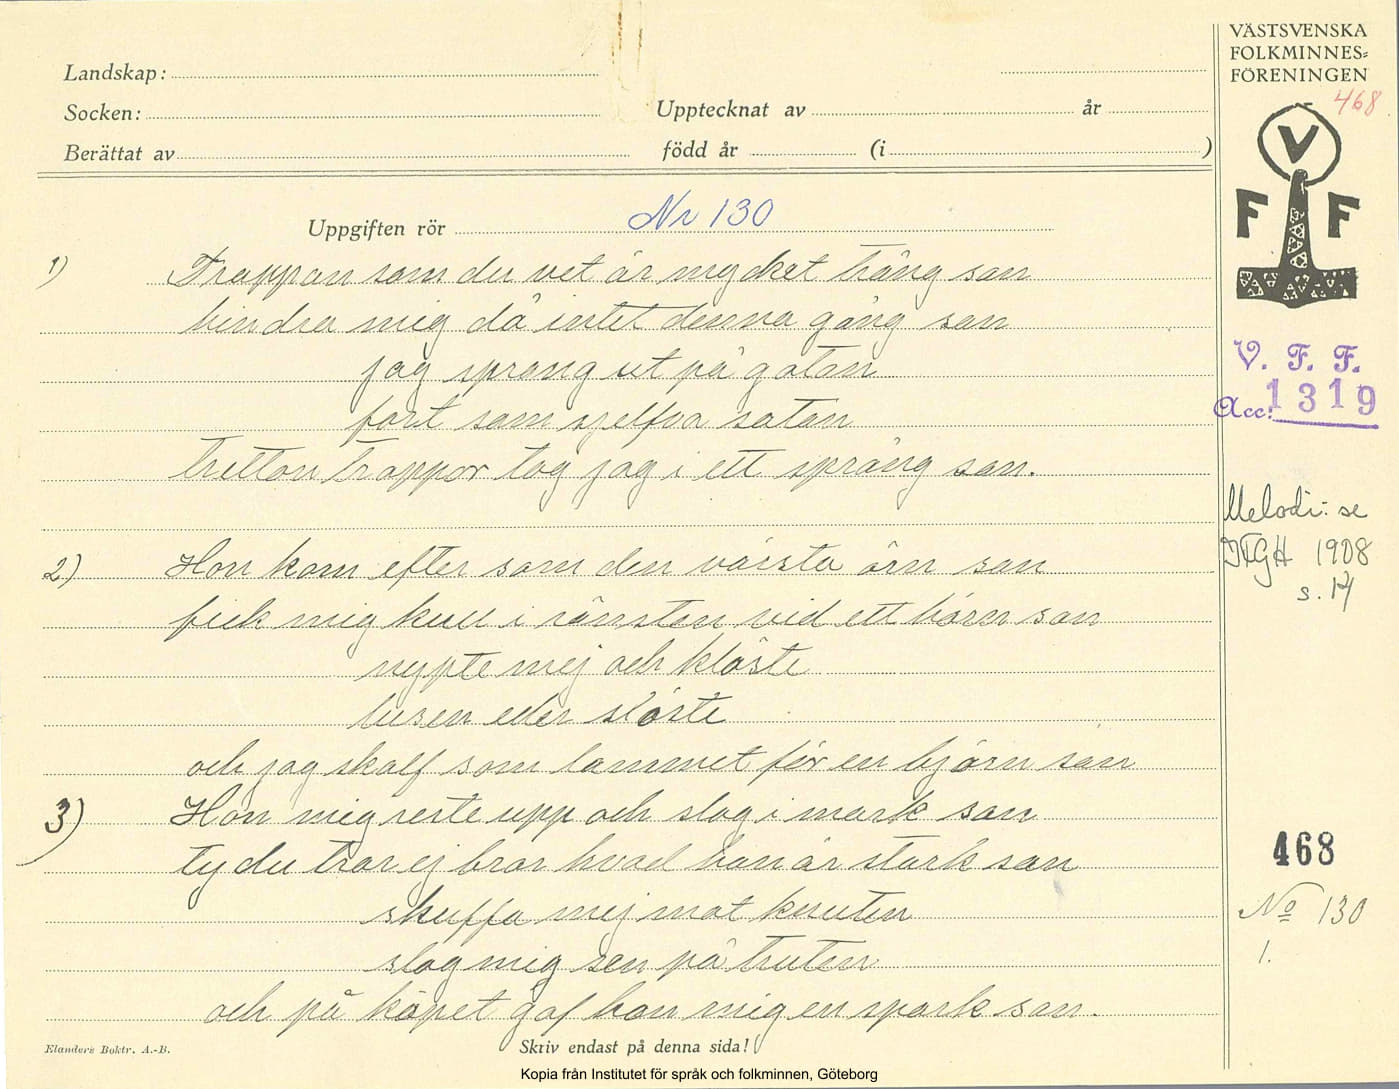 VÄSTSVENSKA
FOLKMINNES=
FÖRENINGEN
468
Landskap:
Socken:
Upptecknat av år
Berättat av född år (i )
V
F F
Uppgiften rör Nr 130
1) Trappan som du vet är mycket trång san
hindra mig då intet denna gång san
jag sprang ut på gatan
fort som sjelfva satan
tretton trappor tog jag i ett språng san.
V. F. F.
Acc: 1319
Melodi: se
IFGH 1908
s. 14
2) Hon kom efter som den värsta örn san
fick mig kull i rännsten vid ett hörn san
nypte mej och klöste
lusen eller slöste
och jag skalf som lammet för en björn san
3) Hon mig reste upp och slog i mark san
ty du tror ej bror hvad hon är stark san
skuffa mej mot knuten
slog mig sen på truten
och på köpet gaf hon mig en spark san.
468
No 130
1.
Elanders Boktr. A.-B.
Skriv endast på denna sida!
Kopia från Institutet för språk och folkminnen, Göteborg